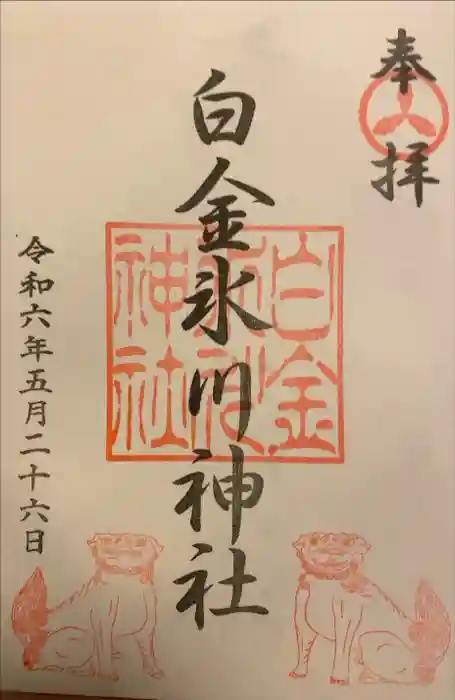 奉拝
白金氷川神社
白金
神社
令和六年五月二十六日